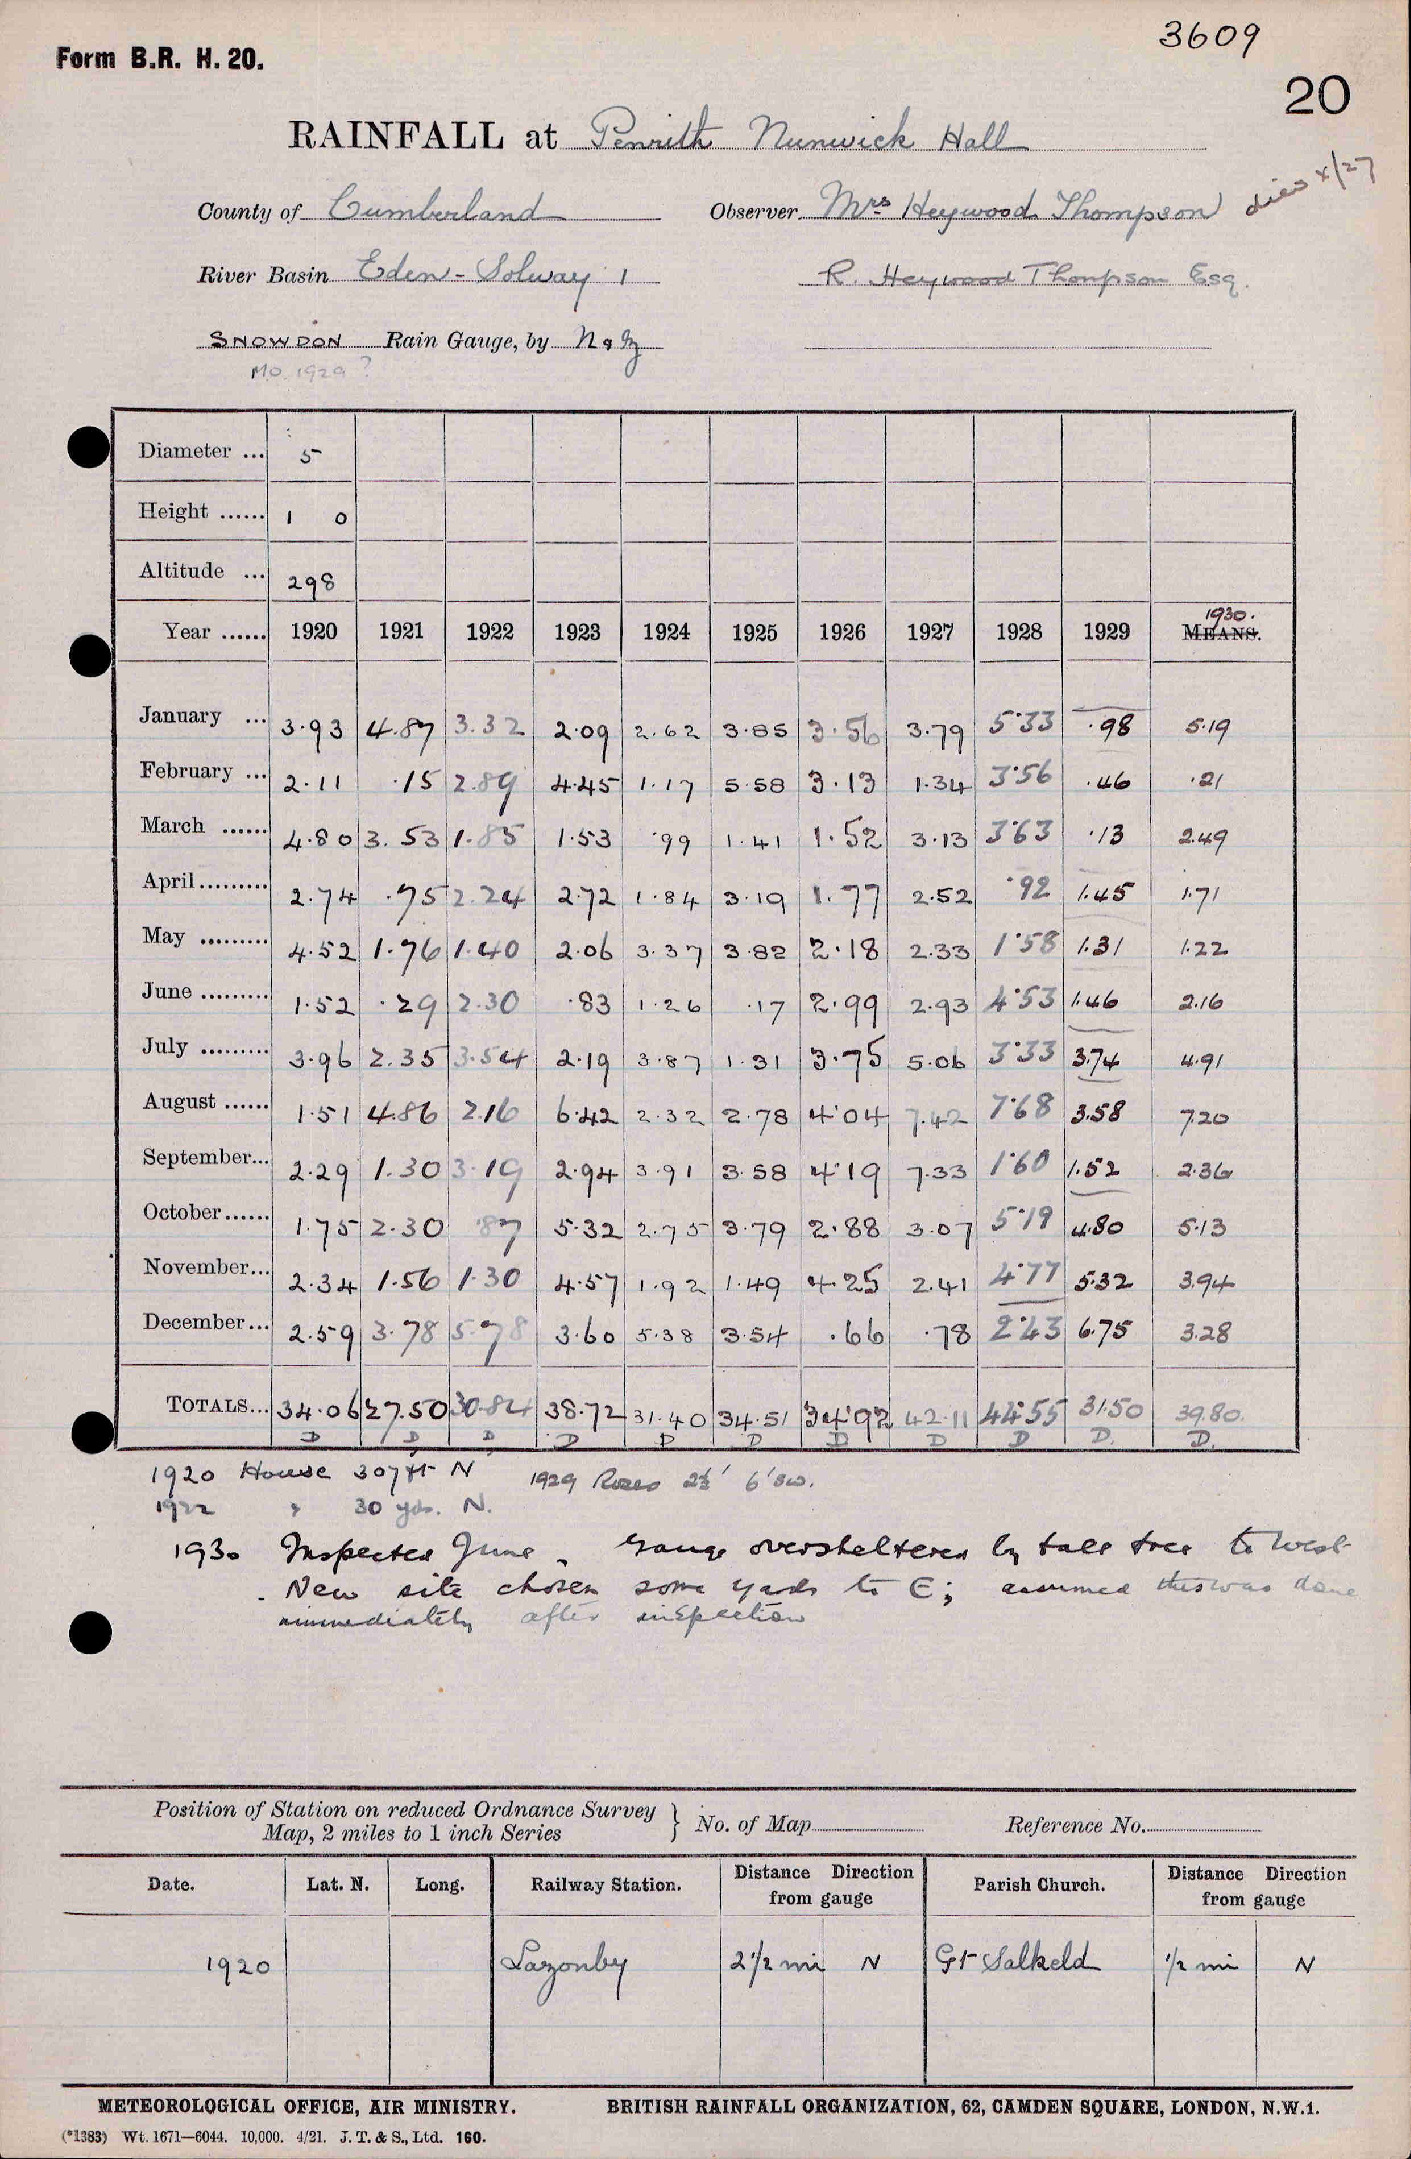 3609
Form B.R. H. 20.
20
RAINFALL at Penrith Nunwick Hall
County of Cumberland Observer Mrs Heywood Thompson died x/27
River Basin Eden - Solway 1 R. Heywood Thompson Esq.
SNOWDON Rain Gauge, by N & Z
M.O. 1929 ?
Diameter ... 5
Height ...... 1 0
Altitude ... 298
1930.
Year ...... 1920 1921 1922 1923 1924 1925 1926 1927 1928 1929 MEANS.
January ... 3.93 4.87 3.32 2.09 2.62 3.85 3.56 3.79 5.33 .98 5.19
February ... 2.11 .15 2.89 4.45 1.17 5.58 3.13 1.34 3.56 .46 .21
March ...... 4.80 3.53 1.85 1.53 .99 1.41 1.52 3.13 3.63 .13 2.49
April ......... 2.74 .75 2.24 2.72 1.84 3.19 1.77 2.52 .92 1.45 1.71
May ......... 4.52 1.76 1.40 2.06 3.37 3.82 2.18 2.33 1.58 1.31 1.22
June ......... 1.52 .29 2.30 .83 1.26 .17 2.99 2.93 4.53 1.46 2.16
July ......... 3.96 2.35 3.54 2.19 3.87 1.31 3.75 5.06 3.33 3.74 4.91
August ...... 1.51 4.86 2.16 6.42 2.32 2.78 4.04 7.42 7.68 3.58 7.20
September... 2.29 1.30 3.19 2.94 3.91 3.58 4.19 7.33 1.60 1.52 2.36
October...... 1.75 2.30 .87 5.32 2.75 3.79 2.88 3.07 5.19 4.80 5.13
November... 2.34 1.56 1.30 4.57 1.92 1.49 4.25 2.41 4.77 5.32 3.94
December... 2.59 3.78 5.78 3.60 5.38 3.54 .66 .78 2.43 6.75 3.28
TOTALS... 34.06 27.50 30.84 38.72 31.40 34.51 34.92 42.11 44.55 31.50 39.80
D D D D D D D D D D. D.
1920 House 307 ft N 1929 Roses 2½' 6' SW.
1922 " 30 yds. N.
1930 Inspected June. Gauge oversheltered by tall tree to West
New site chosen some yards to E; assumed this was done
immediately after inspection
Position of Station on reduced Ordnance Survey Map, 2 miles to 1 inch Series } No. of Map Reference No.
Date. Lat. N. Long. Railway Station. Distance Direction from gauge Parish Church. Distance Direction from gauge
1920 Lazonby 2 1/2 mi N Gt Salkeld 1/2 mi N
METEOROLOGICAL OFFICE, AIR MINISTRY. BRITISH RAINFALL ORGANIZATION, 62, CAMDEN SQUARE, LONDON, N.W.1.
(*1383) Wt. 1671—6044. 10,000. 4/21. J. T. & S., Ltd. 160.